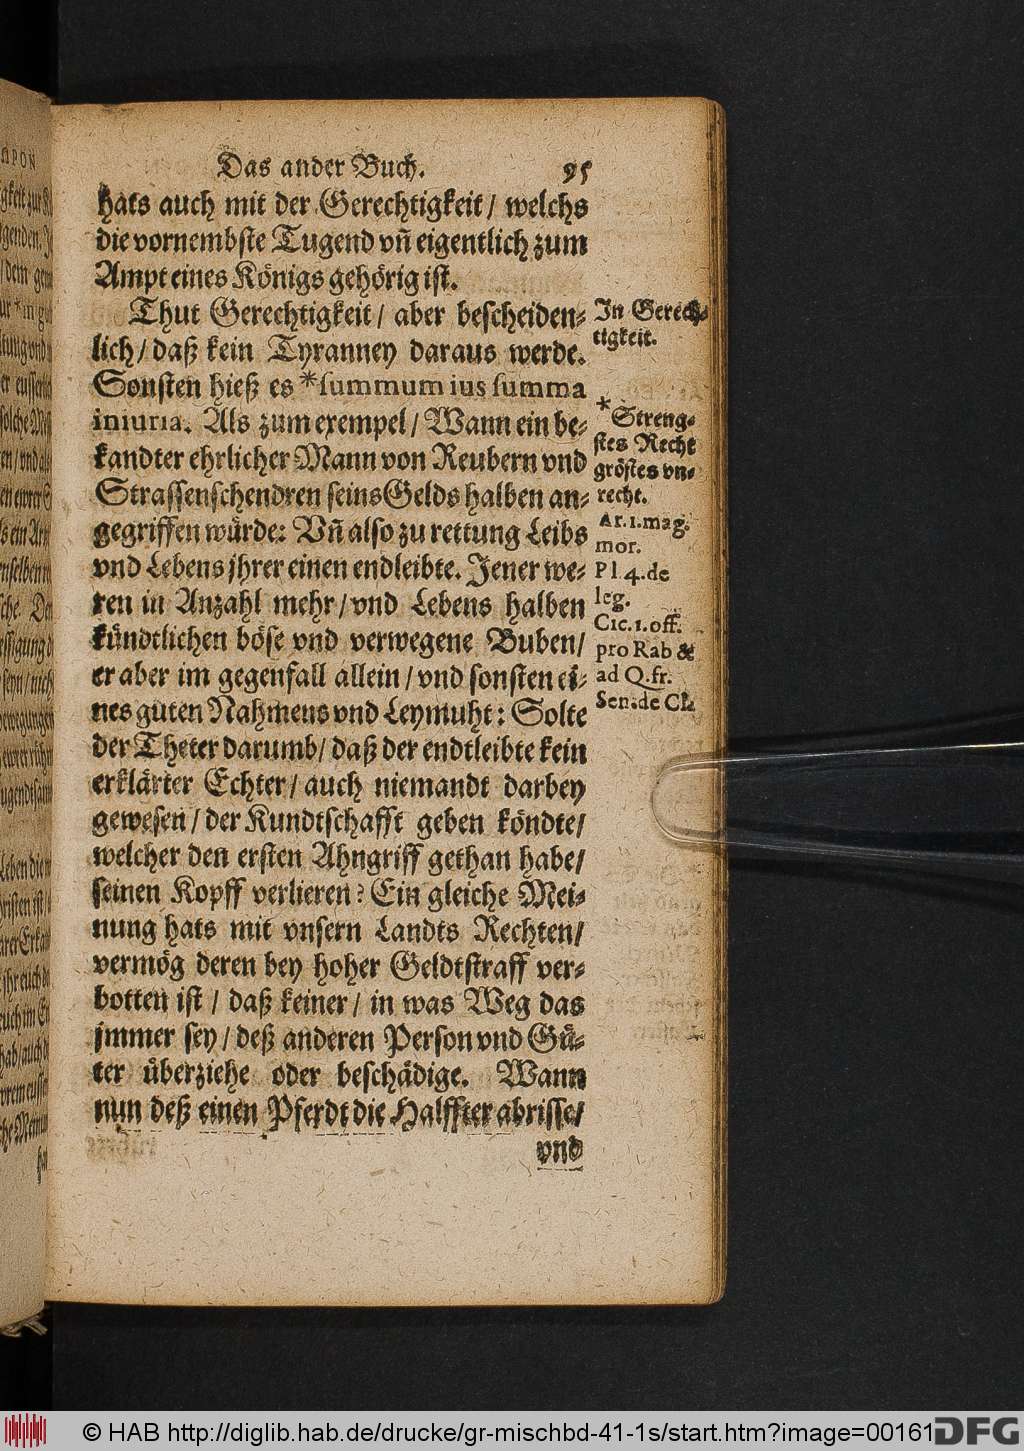 Das ander Buch. 95
hats auch mit der Gerechtigkeit / welchs
die vornembste Tugend vñ eigentlich zum
Ampt eines Königs gehörig ist.
Thut Gerechtigkeit / aber bescheiden-
lich / daß kein Tyranney daraus werde.
Sonsten hieß es *summum ius summa
iniuria. Als zum exempel / Wann ein be-
kandter ehrlicher Mann von Reubern vnd
Strassenschendren seins Gelds halben an-
gegriffen würde: Vñ also zu rettung Leibs
vnd Lebens jhrer einen endleibte. Jener we-
ren in Anzahl mehr / vnd Lebens halben
kündtlichen böse vnd verwegene Buben /
er aber im gegenfall allein / vnd sonsten ei-
nes guten Nahmens vnd Leymuht: Solte
der Theter darumb / daß der endtleibte kein
erklärter Echter / auch niemandt darbey
gewesen / der Kundtschafft geben köndte /
welcher den ersten Ahngriff gethan habe /
seinen Kopff verlieren? Ein gleiche Mei-
nung hats mit vnsern Landts Rechten /
vermög deren bey hoher Geldtstraff ver-
botten ist / daß keiner / in was Weg das
jmmer sey / deß anderen Person vnd Gü-
ter überziehe oder beschädige. Wann
nun deß einen Pferdt die Halffter abrisse /
vnd
In Gerech-
tigkeit.
*Streng-
stes Recht
gröstes vn-
recht.
Ar. 1. mag.
mor.
Pl. 4. de
leg.
Cic. 1. off.
pro Rab &
ad Q. fr.
Sen. de Cl.
© HAB http://diglib.hab.de/drucke/gr-mischbd-41-1s/start.htm?image=00161 DFG